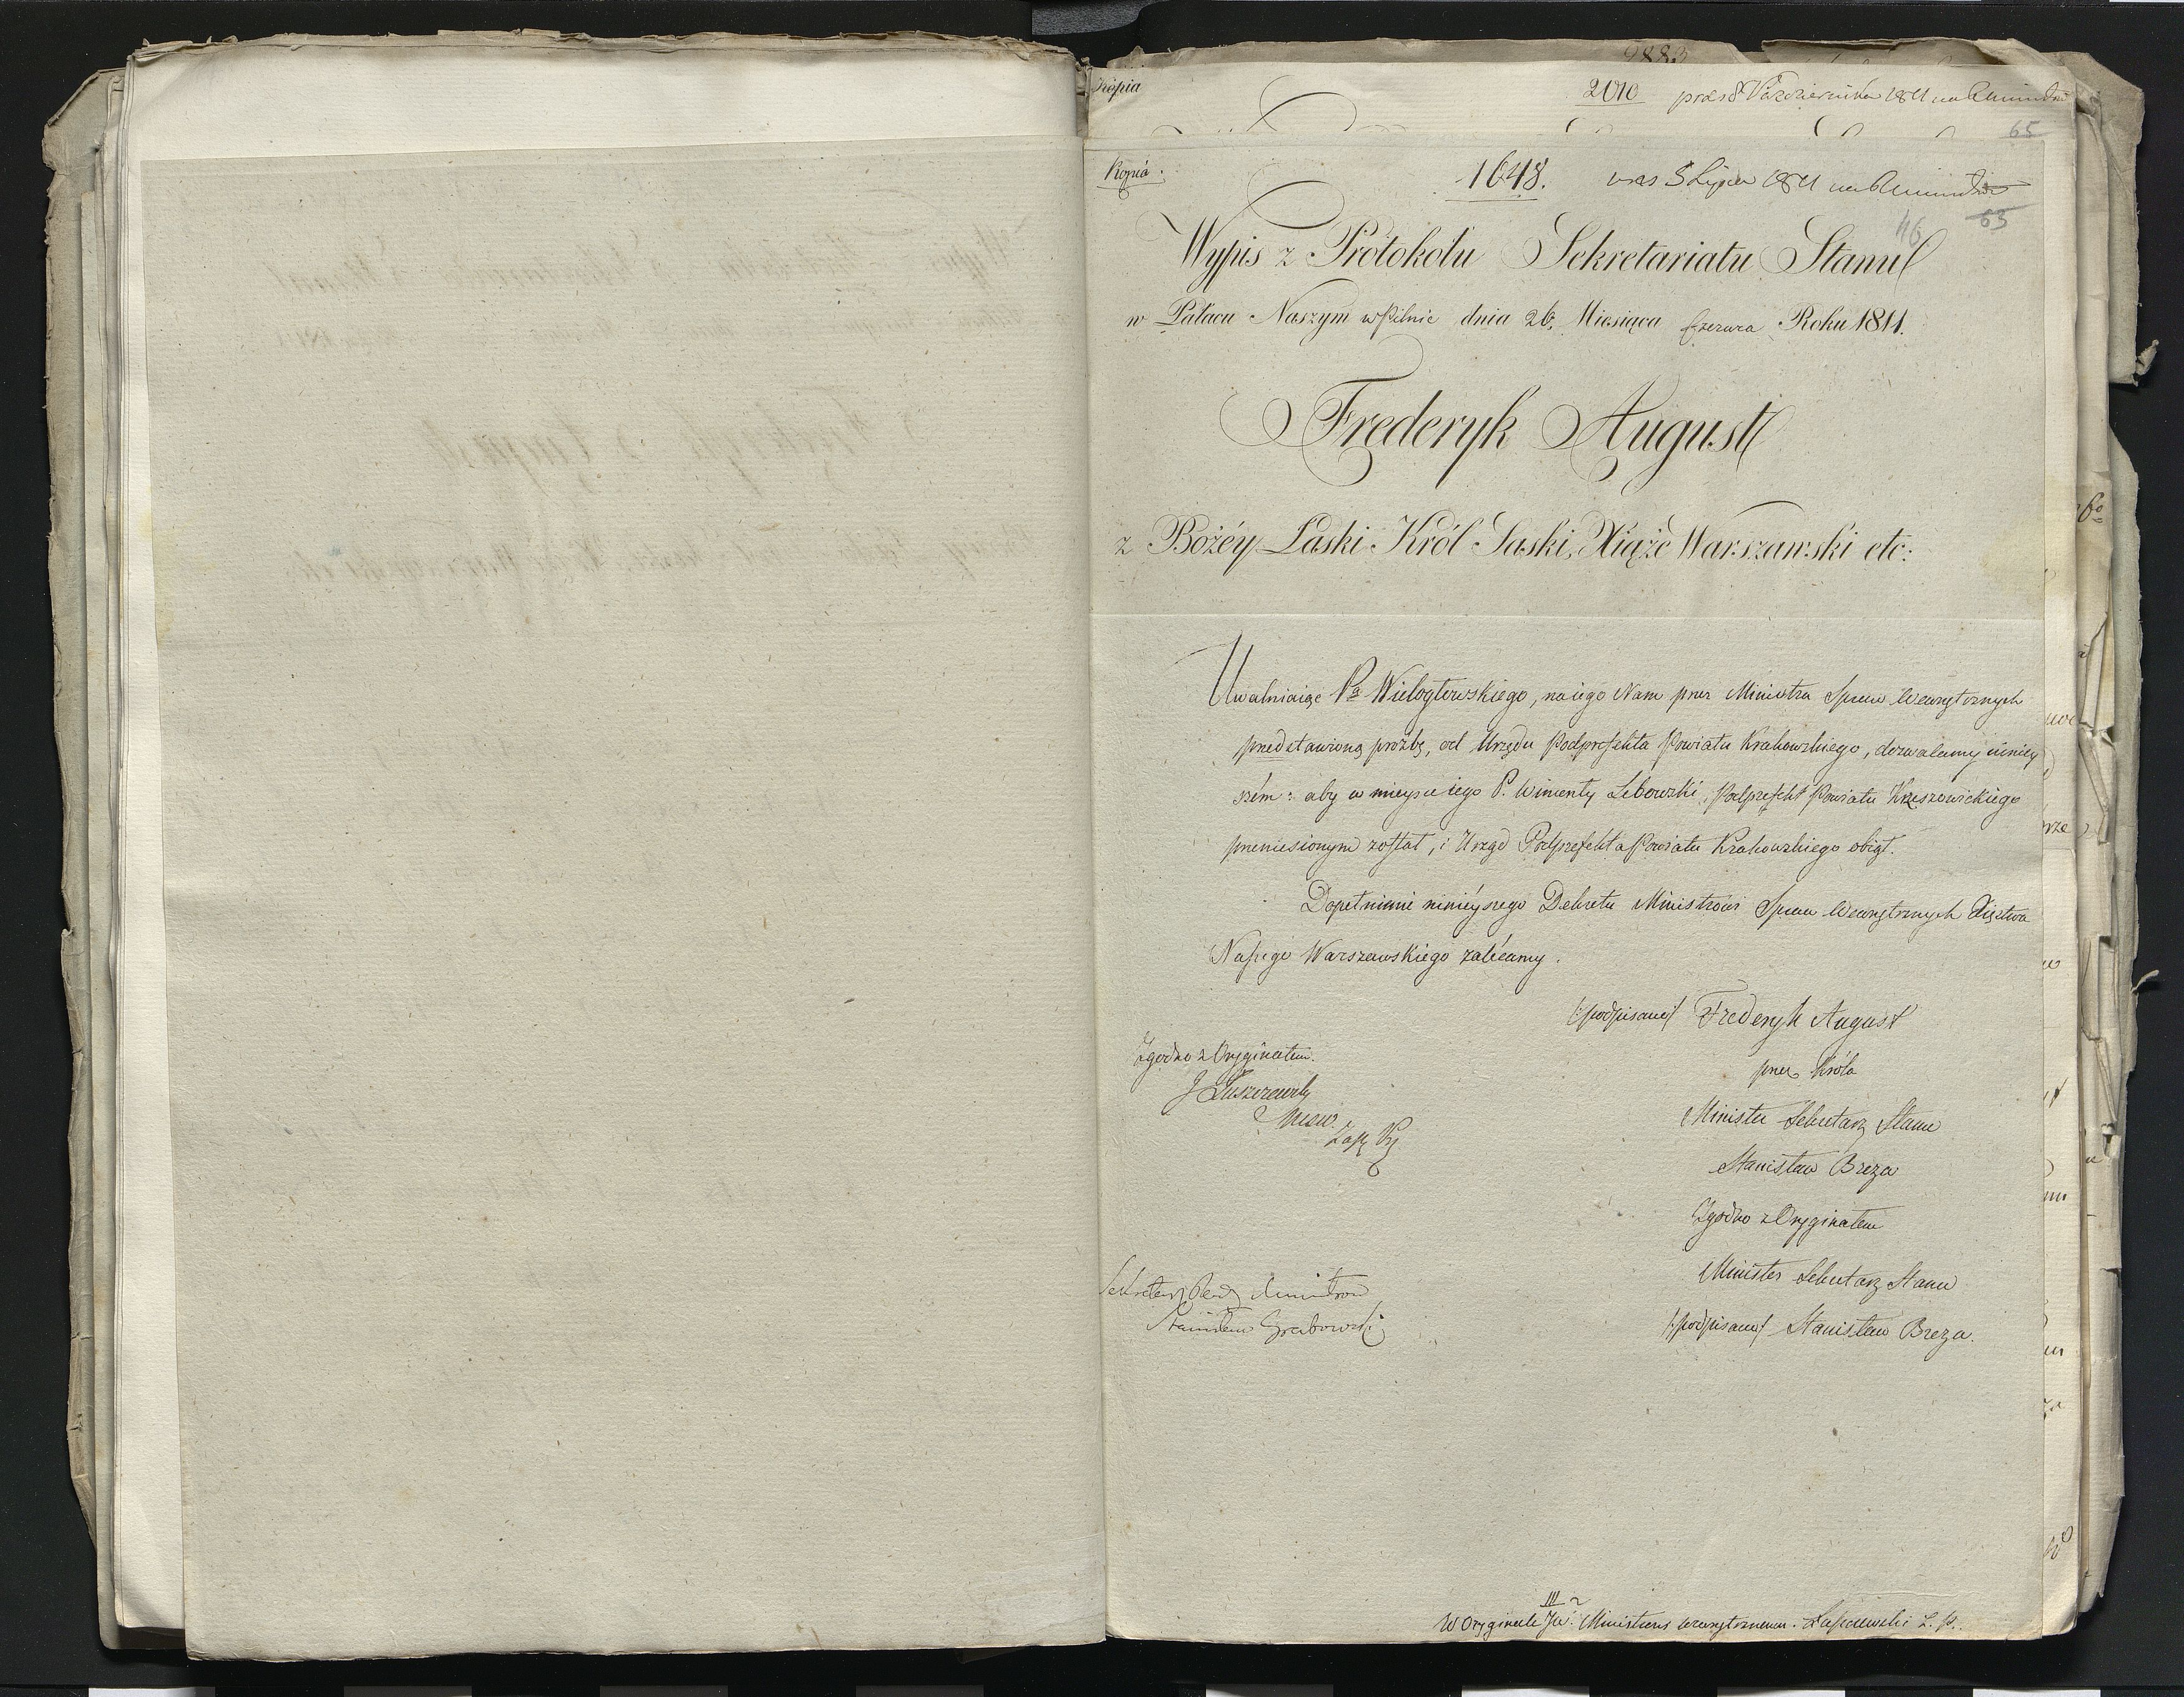 9883
Kopia
2010 præs 8 Października 1811 na R. Ministrów
65
Kopia.
1648. præs 5 Lipca 1811 na R. Ministrów
46 63
Wypis z Protokołu Sekretariatu Stanu
w Pałacu Naszym w Pilnic dnia 26, Miesiąca Czerwca Roku 1811.
Frederyk August
z Bożéy Łaski Król Saski, Xiąże Warszawski etc:
Uwalniaiąc Pa Wielogłowskiego, na iego Nam przez Ministra Spraw Wewnętrznych
przedstawioną prozbę, od Urzędu Podprefekta Powiatu Krakowskiego, dozwalamy niniey
szém: aby w mieysce iego P. Wincenty Łebowski, Podprefekt Powiatu Krzeszowickiego
przeniesionym został, i Urząd Podprefekta Powiatu Krakowskiego obiął.
Dopełnienie ninieyszego Dekretu Ministrowi Spraw Wewnętrznych Xięztwa
Naszego Warszawskiego zalécamy.
/:podpisano/ Frederyk August
przez Króla
Minister Sekretarz Stanu
Stanisław Breza
Zgodno z Oryginałem
Minister Sekretarz Stanu
/:podpisano/ Stanisław Breza.
Zgodno z Oryginałem.
J Łuszczewski
Sekretarz Rady Ministrow
Stanisław Grabowski
III
W Oryginale JW. Ministrowi wewnętrznemu.